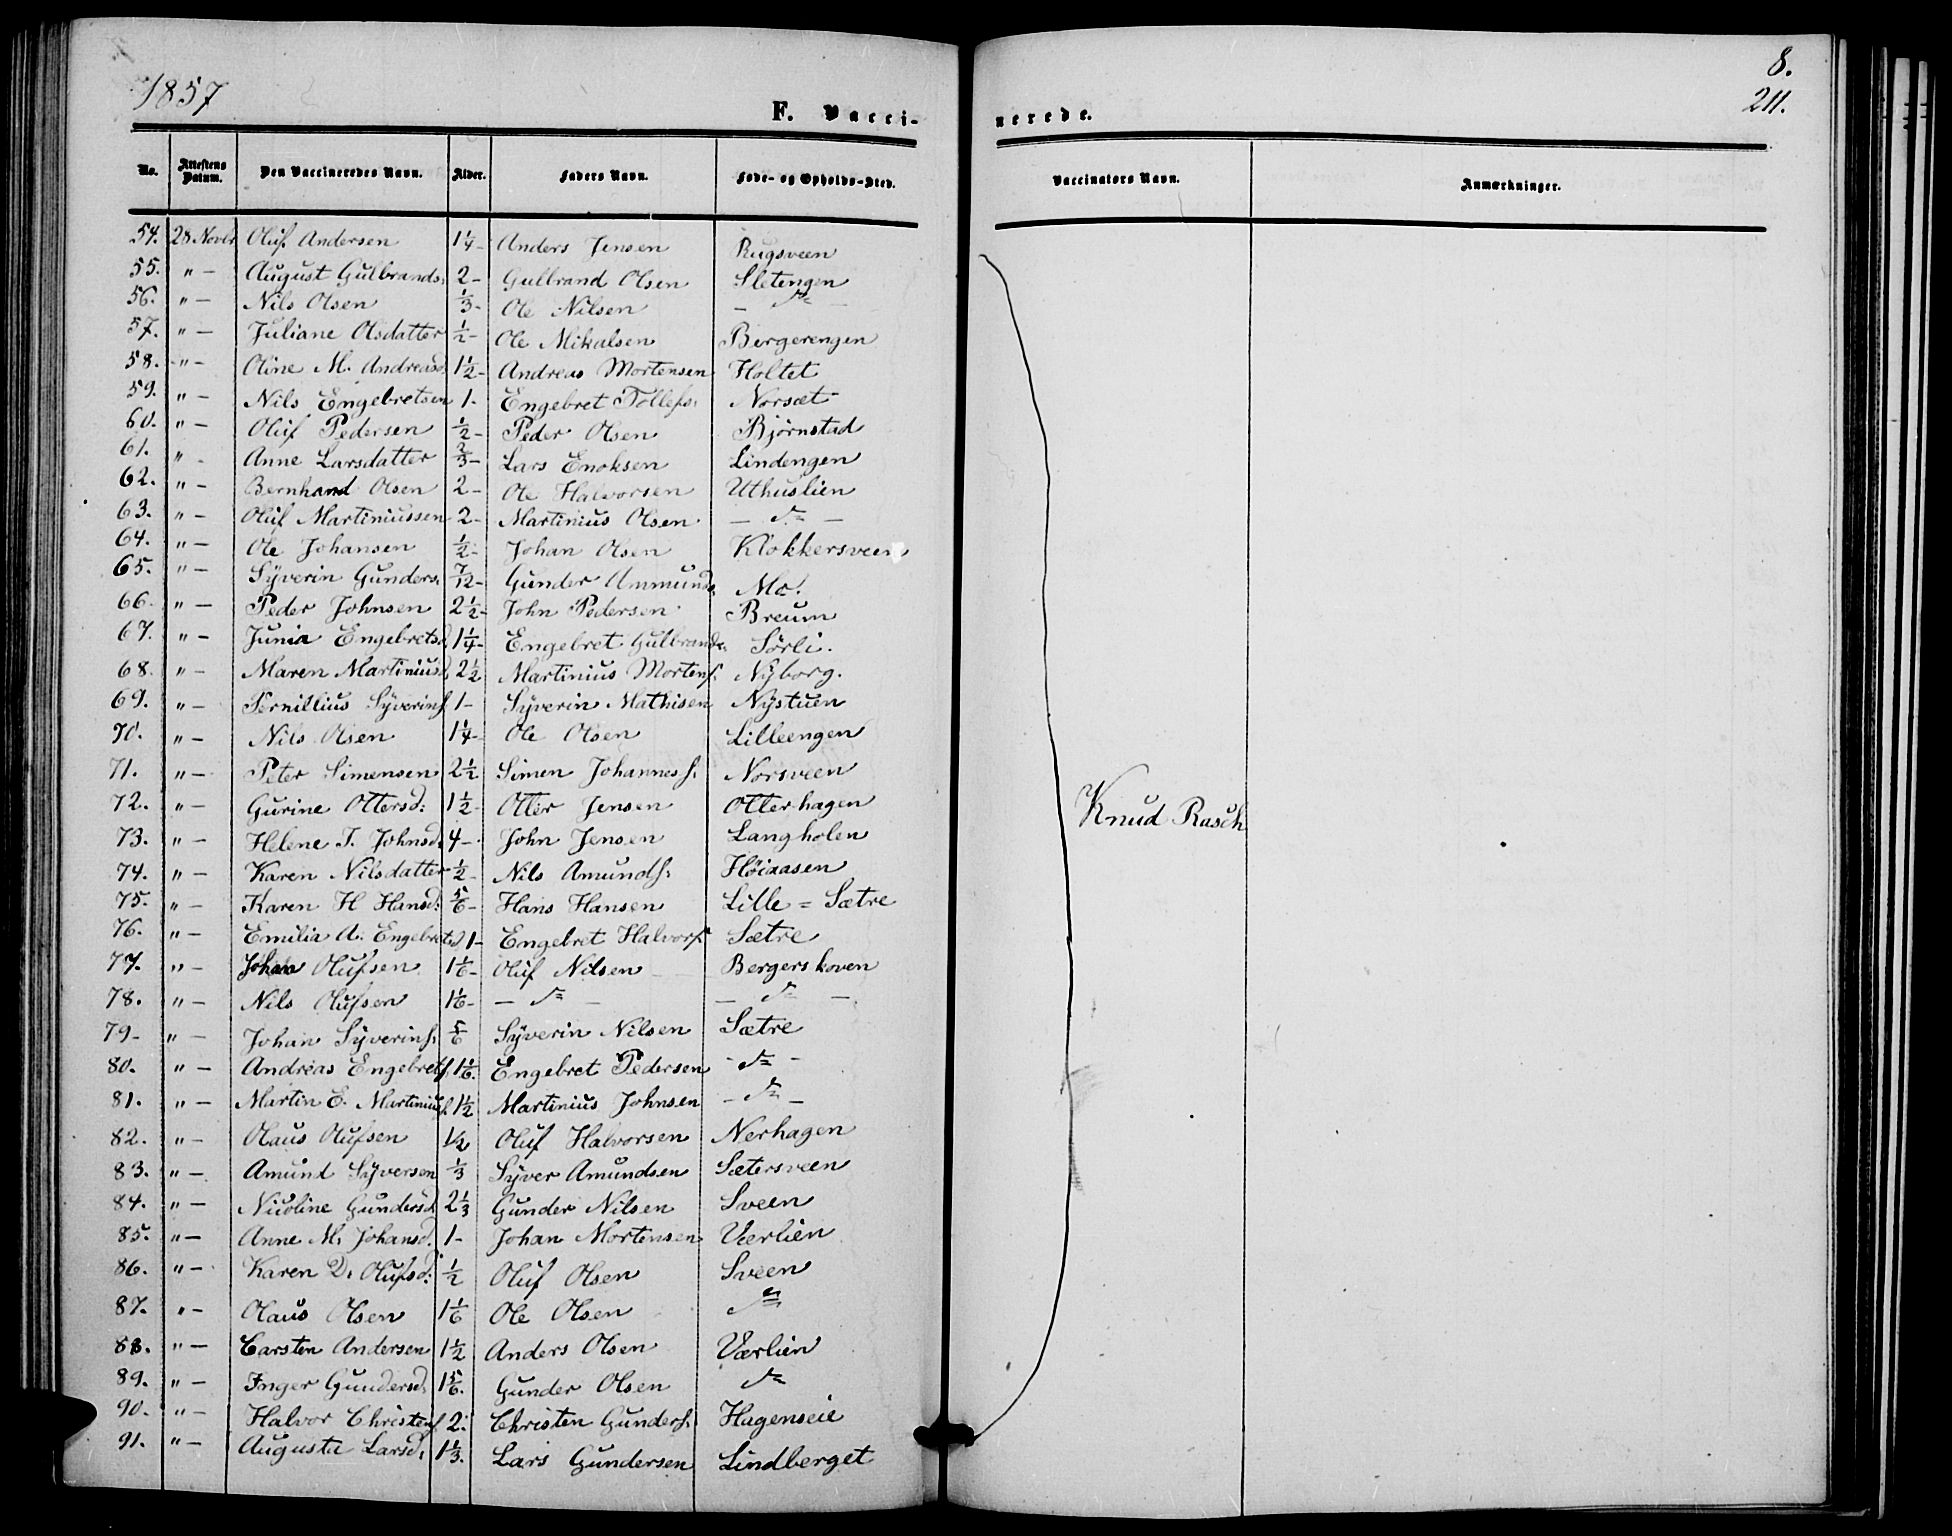 1857
8.
211.
F. Vacci-
nerede.
No. Attestens Datum. Den Vaccineredes Navn. Alder. Faders Navn. Føde- og Opholds-Sted. Vaccinators Navn. Anmærkninger.
54. 28 Novbr Oluf Andersen 1 1/4 - Anders Jensen Rugsveen
55. " - August Gulbrands: 2 - Gulbrand Olsen Sletengen
56. " - Nils Olsen 1/3 - Ole Nilsen - do -
57. " - Juliane Olsdatter 1/2 - Ole Mikalsen Bergerengen
58. " - Oline M. Andreasd. 1 1/2 - Andreas Mortensen Holtet
59. " - Nils Engebretsen 1 - Engebret Tollefs: Norsæt
60. " - Oluf Pedersen 1/2 - Peder Olsen Bjørnstad
61. " - Anne Larsdatter 2/3 - Lars Enoksen Lindengen
62. " - Bernhard Olsen 2 - Ole Halvorsen Uthuslien
63. " - Oluf Martiniussen 2 - Martinius Olsen - do -
64. " - Ole Johansen 1/2 - Johan Olsen Klokkersveen
65. " - Syverin Gunders. 7/12 - Gunder Ammunds. Mo.
66. " - Peder Johnsen 2 1/2 - John Pedersen Breum
67. " - Junia Engebretsd. 1 1/4 - Engebret Gulbrands. Sörli.
68. " - Maren Martiniusd. 2 1/2 Martinius Mortens: Nyborg.
69. " - Pernillius Syverins. 1 - Syverin Mathisen Nystuen
70. " - Nils Olsen 1 1/4 - Ole Olsen Lilleengen
71. " - Peter Simensen 2 1/2 Simen Johanness. Norsveen
72. " - Gurine Ottersd: 1 1/2 - Otter Jensen Otterhagen
73. " - Helene T. Johnsd. 4 - John Jensen Langholen
74. " - Karen Nilsdatter 1/2 - Nils Amunds: Höiaasen
75. " - Karen H Hansd: 5/6 - Hans Hansen Lille = Sætre
76. " - Emilia A. Engebretsd. 1 - Engebret Halvors. Sætre
77. " - Johan Olufsen 1 1/6 - Oluf Nilsen Bergerskoven
78. " - Nils Olufsen 1 1/6 - - do - - do -
79 - " - Johan Syverins. 5/6 Syverin Nilsen Sætre
80. " - Andreas Engebrets. 1 1/6. Engebret Pedersen - do -
81. " - Martin E. Martinius. 1 1/2 Martinius Johnsen - do -
82. " - Olaus Olufsen 1/2 Oluf Halvorsen Nerhagen
83. " - Amund Syversen 1/3 Syver Amundsen Sætersveen
84. " - Nicoline Gundersd 2 1/3 Gunder Nilsen Sveen
85. " - Anne M. Johansd. 1 - Johan Mortensen Værlien
86. " - Karen D. Olufsd: 1/2 Oluf Olsen Sveen
87. " - Olaus Olsen 1 1/6 Ole Olsen do
88. " - Carsten Andersen 1 1/2 Anders Olsen Værlien
89. " - Inger Gundersd. 1 5/6. Gunder Olsen do
90. " - Halvor Christens. 2. Christen Gunders. Hagenseie
91. " - Auguste Larsd, 1 1/3. Lars Gundersen Lindberget
Knud Rasch